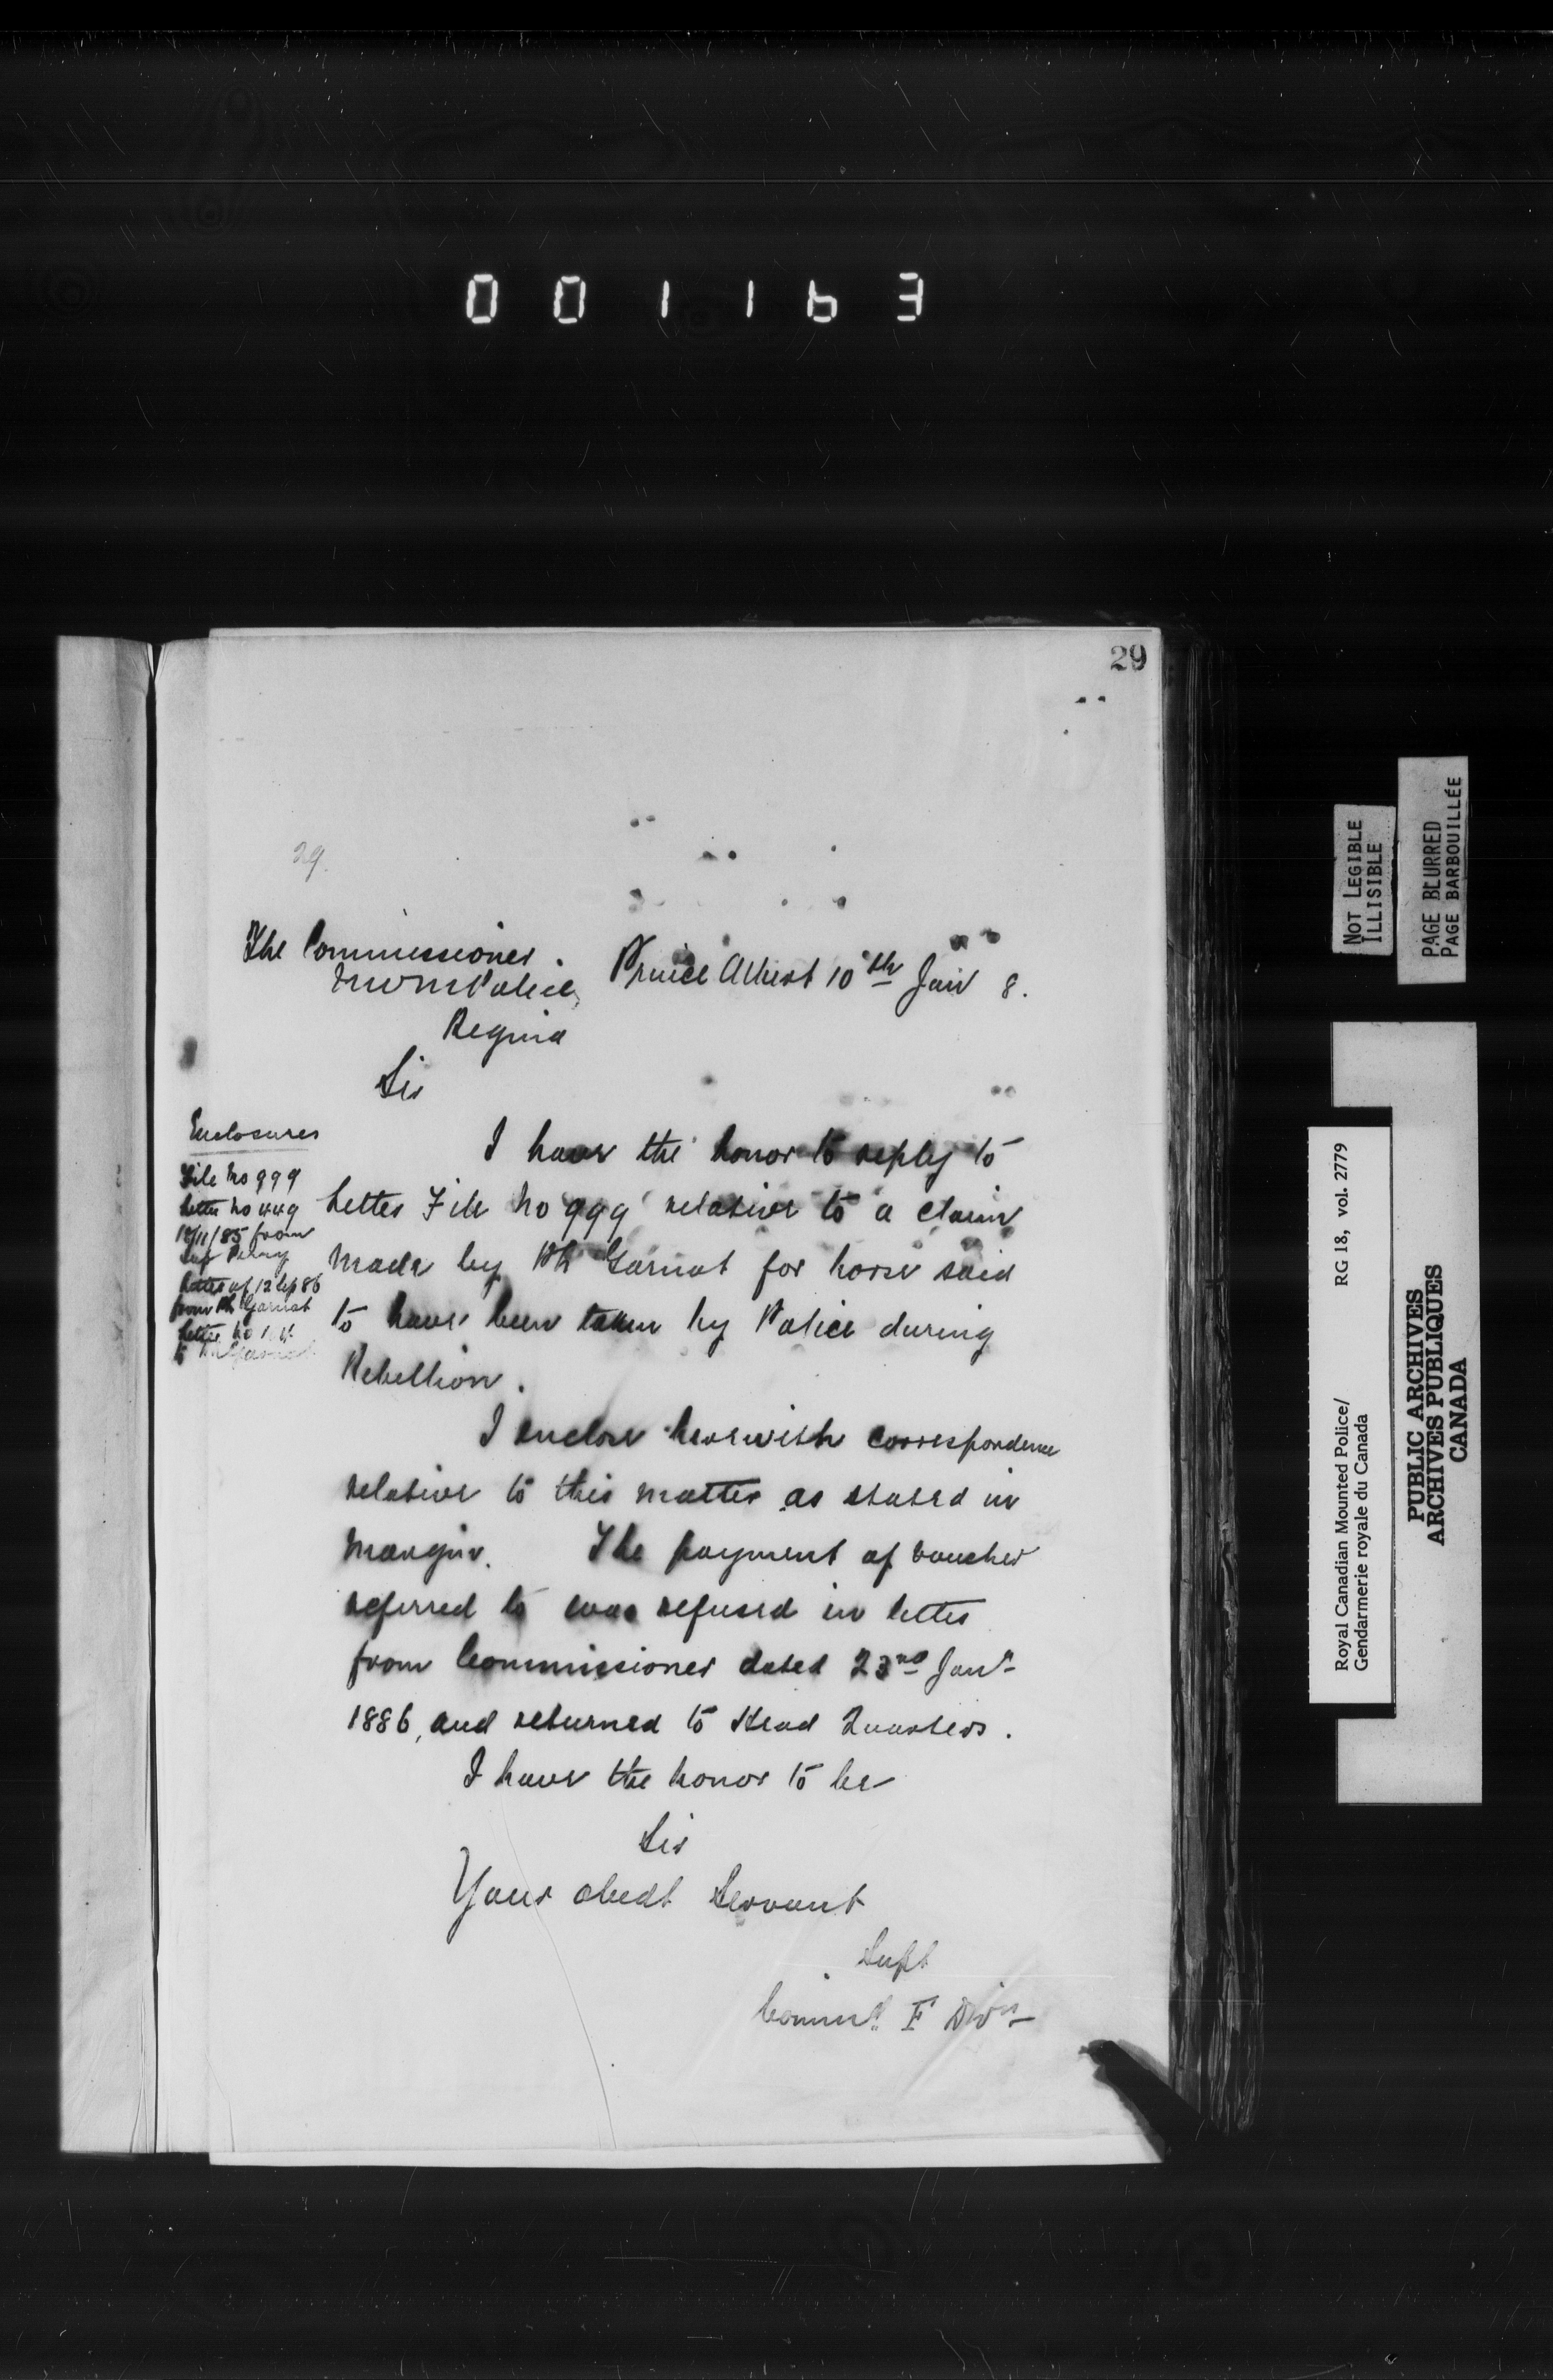 001163
29
29.
The Commissioner.
NWM Police,
Prince Albert 10th Jan 8.
Regina
Sir
Enclosures
File No 999
Letter No 449
12/11/85 from
Sup Perry
Letter of 12 Sep 86
from Ph Garnot
Letter No
to Ph Garnot
I have the honor to reply to
Letter File No 999 relative to a claim
made by Ph Garnot for horse said
to have been taken by Police during
Rebellion.
I enclose herewith correspondence
relative to this matter as stated in
Margin. The payment of voucher
referred to was refused in letter
from Commissioner dated 23rd Jany
1886, and returned to Head Quarters.
I have the honor to be
Sir
Your obedt Servant
Supt
Commd. F Divn
NOT LEGIBLE
ILLISIBLE
PAGE BLURRED
PAGE BARBOUILLÉE
Royal Canadian Mounted Police/
Gendarmerie royale du Canada
RG 18, vol. 2779
PUBLIC ARCHIVES
ARCHIVES PUBLIQUES
CANADA